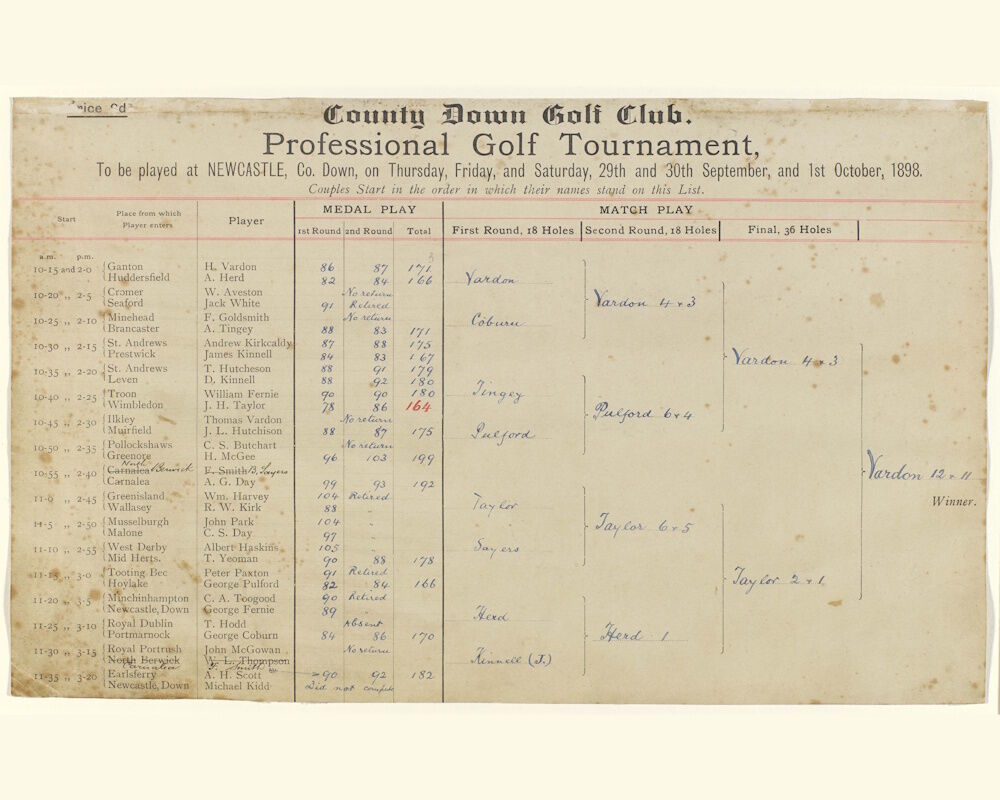 County Down Golf Club.
Professional Golf Tournament,
To be played at NEWCASTLE, Co. Down, on Thursday, Friday, and Saturday, 29th and 30th September, and 1st October, 1898.
Couples Start in the order in which their names stand on this List.
Start Place from which Player enters Player MEDAL PLAY MATCH PLAY
1st Round 2nd Round Total First Round, 18 Holes Second Round, 18 Holes Final, 36 Holes
a.m. p.m.
10-15 and 2-0 Ganton H. Vardon 86 87 171
Huddersfield A. Herd 82 84 166 Vardon
10-20 ,, 2-5 Cromer W. Aveston No return
Seaford Jack White 91 Retired Vardon 4 & 3
10-25 ,, 2-10 Minehead F. Goldsmith No return
Brancaster A. Tingey 88 83 171 Coburn
10-30 ,, 2-15 St. Andrews Andrew Kirkcaldy 87 88 175
Prestwick James Kinnell 84 83 167 Vardon 4 & 3
10-35 ,, 2-20 St. Andrews T. Hutcheson 88 91 179
Leven D. Kinnell 88 92 180
10-40 ,, 2-25 Troon William Fernie 90 90 180 Tingey
Wimbledon J. H. Taylor 78 86 164 Pulford 6 & 4
10-45 ,, 2-30 Ilkley Thomas Vardon No return
Muirfield J. L. Hutchison 88 87 175 Pulford
10-50 ,, 2-35 Pollockshaws C. S. Butchart No return
Greenore H. McGee 96 103 199
10-55 ,, 2-40 Carnalea North Berwick F. Smith B. Sayers Vardon 12 & 11
Carnalea A. G. Day 99 93 192
11-0 ,, 2-45 Greenisland Wm. Harvey 104 Retired Winner.
Wallasey R. W. Kirk 88 Taylor
11-5 ,, 2-50 Musselburgh John Park 104
Malone C. S. Day 97 Taylor 6 & 5
11-10 ,, 2-55 West Derby Albert Haskins 105 Sayers
Mid Herts. T. Yeoman 90 88 178
11-15 ,, 3-0 Tooting Bec Peter Paxton 91 Retired
Hoylake George Pulford 82 84 166 Taylor 2 & 1
11-20 ,, 3-5 Minchinhampton C. A. Toogood 90 Retired
Newcastle, Down George Fernie 89 Herd
11-25 ,, 3-10 Royal Dublin T. Hodd Absent
Portmarnock George Coburn 84 86 170 Herd 1
11-30 ,, 3-15 Royal Portrush John McGowan No return
North Berwick W. L. Thompson Kinnell (J.)
Carnalea F. Smith
11-35 ,, 3-20 Earlsferry A. H. Scott 90 92 182
Newcastle, Down Michael Kidd Did not compete